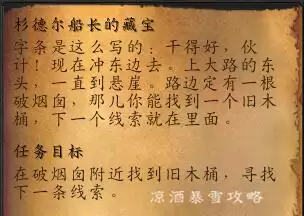 杉德尔船长的藏宝
字条是这么写的：干得好，伙
计！现在冲东边去。上大路的东
头，一直到悬崖。路边定有一根
破烟囱，那儿你能找到一个旧木
桶，下一个线索就在里面。
任务目标
在破烟囱附近找到旧木桶，寻找
下一条线索。
凉酒暴雪攻略